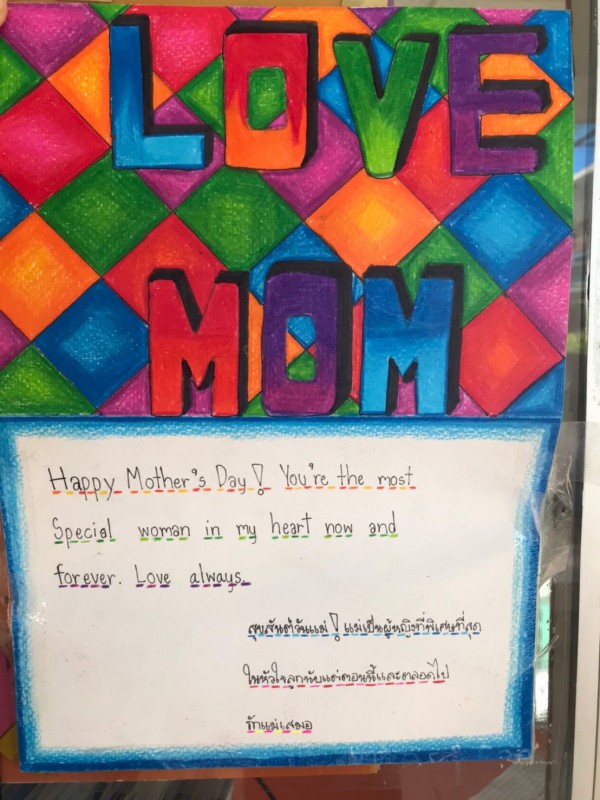 LOVE
MOM
Happy Mother's Day! You're the most
Special woman in my heart now and
forever. Love always.
สุขสันต์วันแม่! แม่เป็นผู้หญิงที่พิเศษที่สุด
ในหัวใจลูกนับแต่ตอนนี้และตลอดไป
รักแม่เสมอ